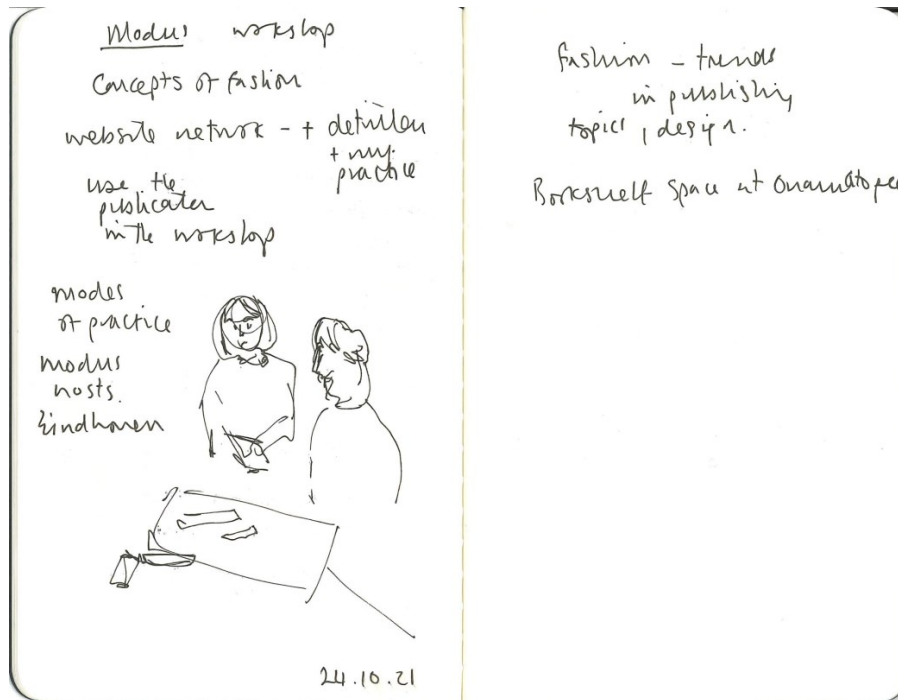 Modus workshop
Concepts of fashion
website network - + definition
+ my
practice
use the
publication
in the workshop
modes
of practice
modus
hosts.
Eindhoven
24.10.21
fashion - trends
in publishing
topics, design.
Bookshelf space at Onomatopee